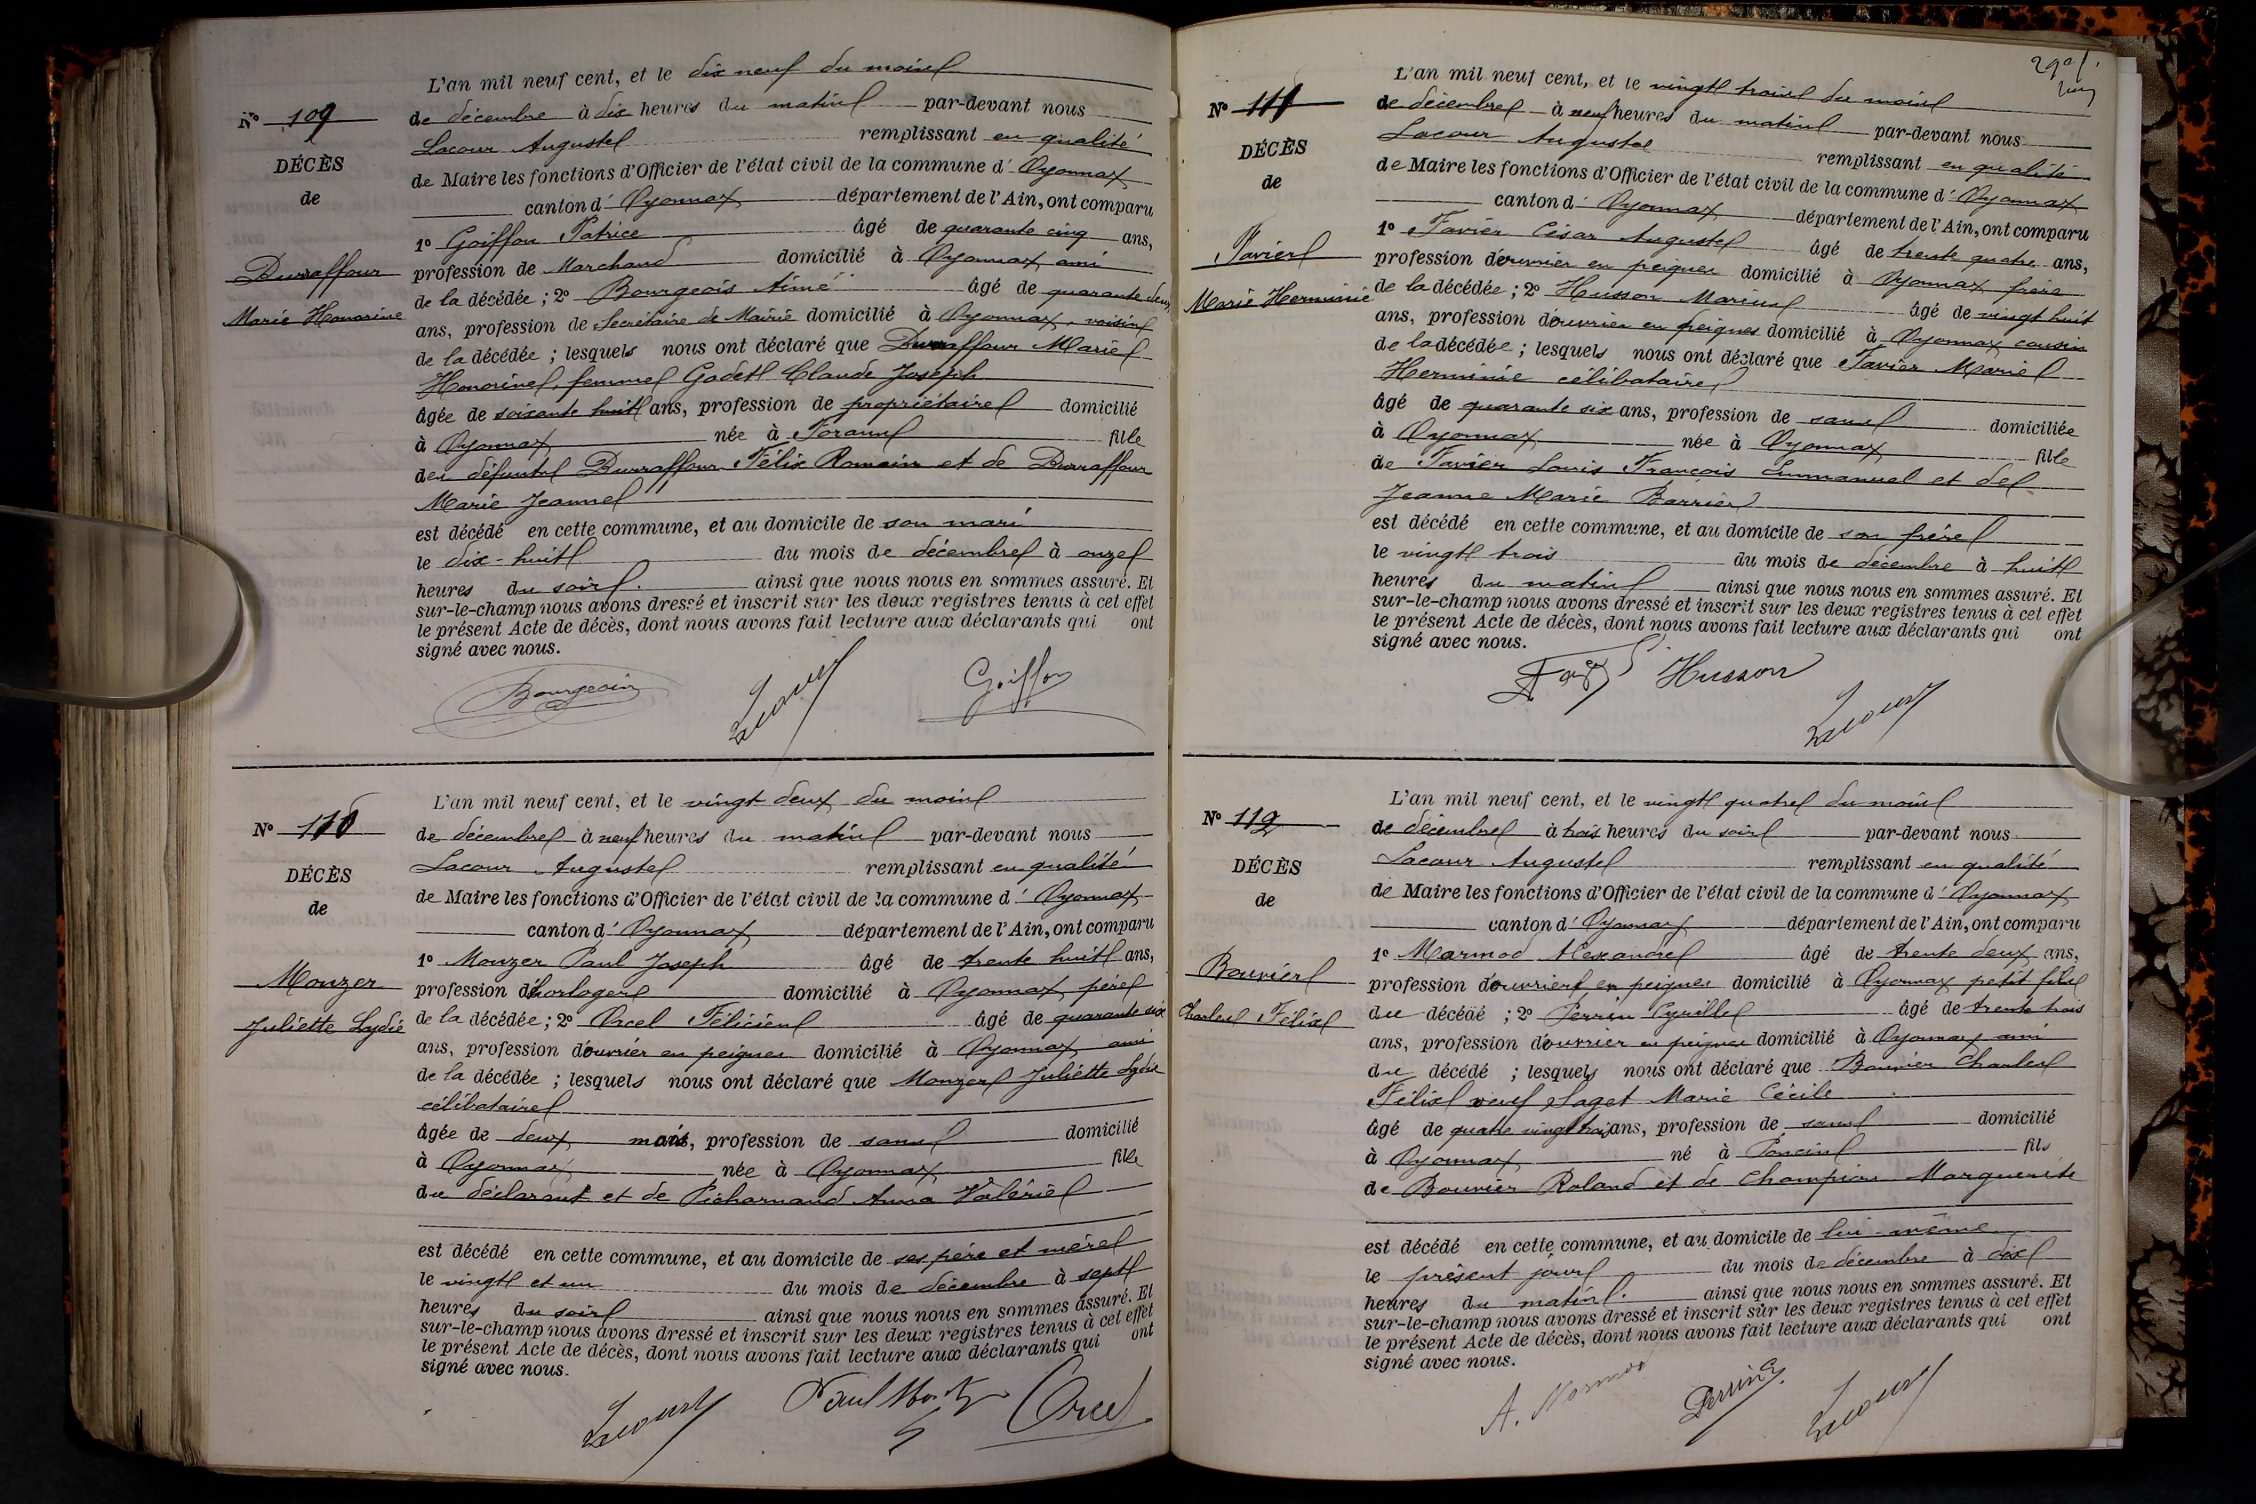 L'an mil neuf cent, et le dix neuf du mois
N° 109
de décembre à dix heures du matin par-devant nous
Lacour Auguste remplissant en qualité
DÉCÈS
de Maire les fonctions d'Officier de l'état civil de la commune d' Oyonnax
de
canton d' Oyonnax département de l'Ain, ont comparu
1° Goiffon Patrice âgé de quarante cinq ans,
Durraffour
profession de Marchand domicilié à Oyonnax ami
de la décédée ; 2° Bourgeois Aimé âgé de quarante deux
Marie Honorine
ans, profession de Secrétaire de Mairie domicilié à Oyonnax, voisin
de la décédée ; lesquels nous ont déclaré que Durraffour Marie
Honorine, femme Gadet Claude Joseph
âgée de soixante huit ans, profession de propriétaire domicilié
à Oyonnax née à fille
des défunts Durraffour Félix Romain et de Durraffour
Marie Jeanne
est décédé en cette commune, et au domicile de son mari
le dix-huit du mois de décembre à onze
heures du soir. ainsi que nous nous en sommes assuré. Et
sur-le-champ nous avons dressé et inscrit sur les deux registres tenus à cet effet
le présent Acte de décès, dont nous avons fait lecture aux déclarants qui ont
signé avec nous.
Bourgeois Lacour Goiffon
L'an mil neuf cent, et le vingt deux du mois
N° 110
de décembre à neuf heures du matin par-devant nous
Lacour Auguste remplissant en qualité
DÉCÈS
de Maire les fonctions d'Officier de l'état civil de la commune d' Oyonnax
de
canton d' Oyonnax département de l'Ain, ont comparu
1° Monzer Paul Joseph âgé de trente huit ans,
Monzer
profession d'horloger domicilié à Oyonnax père
Juliette Lydie
de la décédée ; 2° Orcel Félicien âgé de quarante six
ans, profession d'ouvrier en peignes domicilié à Oyonnax ami
de la décédée ; lesquels nous ont déclaré que Monzer Juliette Lydie
célibataire
âgée de deux mois, profession de sans domicilié
à Oyonnax née à Oyonnax fille
du déclarant et de Picharnaud Anna Valérie
est décédé en cette commune, et au domicile de ses père et mère
le vingt et un du mois de décembre à sept
heures du soir ainsi que nous nous en sommes assuré. Et
sur-le-champ nous avons dressé et inscrit sur les deux registres tenus à cet effet
le présent Acte de décès, dont nous avons fait lecture aux déclarants qui ont
signé avec nous.
Lacour Paul Orcel
L'an mil neuf cent, et le vingt trois du mois
N° 111
de décembre à neuf heures du matin par-devant nous
Lacour Auguste remplissant en qualité
DÉCÈS
de Maire les fonctions d'Officier de l'état civil de la commune d' Oyonnax
de
canton d' Oyonnax département de l'Ain, ont comparu
1° Favier César Auguste âgé de trente quatre ans,
Favier
profession d'ouvrier en peignes domicilié à Oyonnax frère
Marie Herminie
de la décédée ; 2° Husson Marius âgé de vingt huit
ans, profession d'ouvrier en peignes domicilié à Oyonnax cousin
de la décédée ; lesquels nous ont déclaré que Favier Marie
Herminie célibataire
âgé de quarante six ans, profession de sans domiciliée
à Oyonnax née à Oyonnax fille
de Favier Louis François Emmanuel et de
Jeanne Marie Barrier
est décédé en cette commune, et au domicile de son frère
le vingt trois du mois de décembre à huit
heures du matin ainsi que nous nous en sommes assuré. Et
sur-le-champ nous avons dressé et inscrit sur les deux registres tenus à cet effet
le présent Acte de décès, dont nous avons fait lecture aux déclarants qui ont
signé avec nous.
Husson
Lacour
L'an mil neuf cent, et le vingt quatre du mois
N° 112
de décembre à trois heures du soir par-devant nous
Lacour Auguste remplissant en qualité
DÉCÈS
de Maire les fonctions d'Officier de l'état civil de la commune d' Oyonnax
de
canton d' Oyonnax département de l'Ain, ont comparu
1° Marmod Alexandre âgé de trente deux ans,
Bouvier
profession d'ouvrier en peignes domicilié à Oyonnax petit fils
Charles Félix
du décédé ; 2° Perrin Cyrille âgé de trente trois
ans, profession d'ouvrier en peignes domicilié à Oyonnax ami
du décédé ; lesquels nous ont déclaré que Bouvier Charles
Félix veuf Saget Marie Cécile
âgé de quatre vingt trois ans, profession de sans domicilié
à Oyonnax né à Poncin fils
de Bouvier Roland et de Champion Marguerite
est décédé en cette commune, et au domicile de lui-même
le présent jour du mois de décembre à dix
heures du matin. ainsi que nous nous en sommes assuré. Et
sur-le-champ nous avons dressé et inscrit sur les deux registres tenus à cet effet
le présent Acte de décès, dont nous avons fait lecture aux déclarants qui ont
signé avec nous.
A. Marmod Perrin C. Lacour